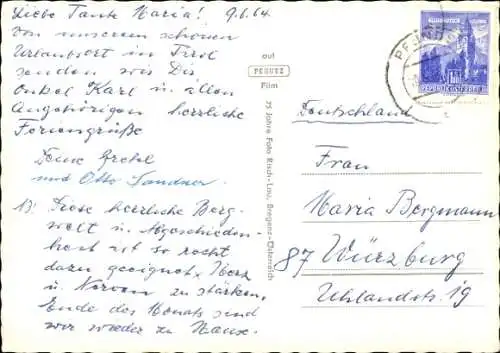 Liebe Tante Maria! 9.6.64
Von unserem schönen
Urlaubsort in Tirol
senden wir Dir
Onkel Karl u. allen
Angehörigen herzliche
Feriengrüße
Deine Gretel
und Otto Sandner.
B: Diese herrliche Berg-
welt u. Abgeschieden-
heit ist so recht
dazu geeignet, Herz
u. Nerven zu stärken.
Ende des Monats sind
wir wieder zu Hause.
auf
PERUTZ
Film
75 Jahre Foto Risch-Lau, Bregenz-Österreich
PFUNDS
REPUBLIK ÖSTERREICH
Deutschland
Frau
Maria Bergmann
87 Würzburg
Uhlandstr. 19